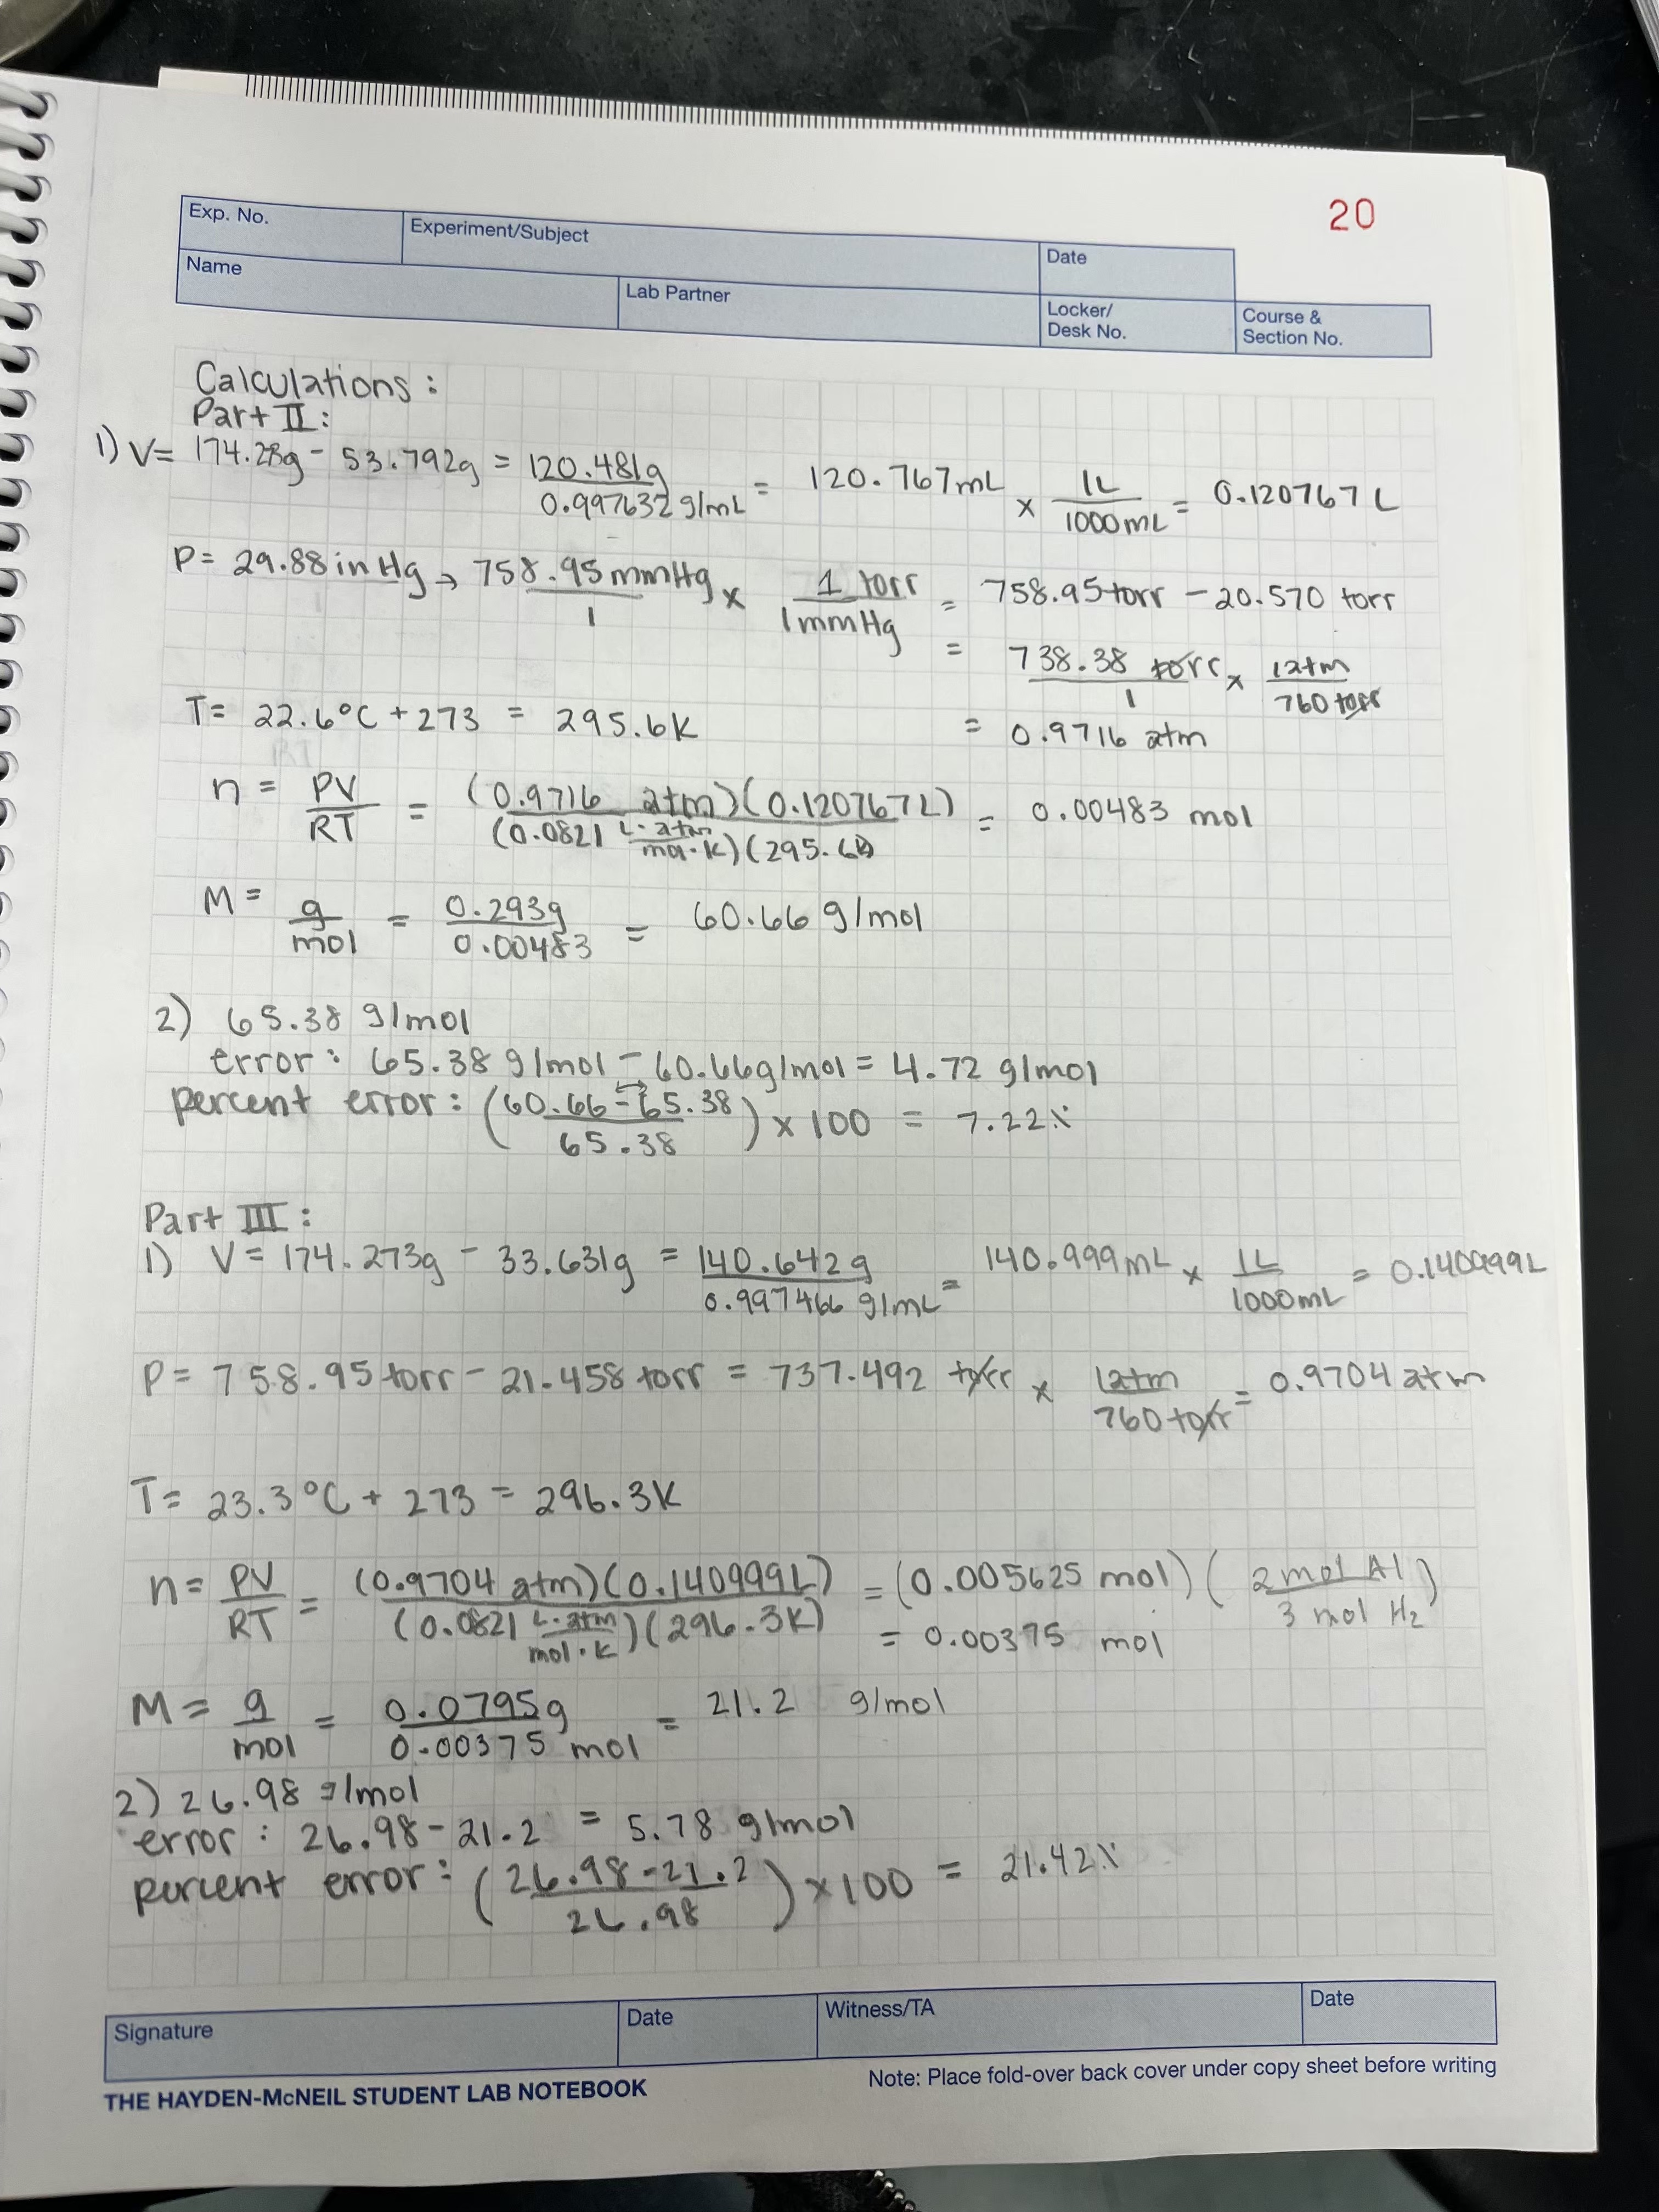 20
Exp. No.
Experiment/Subject
Date
Name
Lab Partner
Locker/
Desk No.
Course &
Section No.
Calculations:
Part II:
1) V= 174.28g - 53.792g = 120.481g / 0.997632 g/mL = 120.767mL × 1L / 1000mL = 0.120767 L
P= 29.88 in Hg → 758.95 mmHg / 1 × 1 torr / 1mmHg = 758.95torr - 20.570 torr
= 738.38 torr / 1 × 1atm / 760 torr
T= 22.6°C + 273 = 295.6K
= 0.9716 atm
n = PV / RT = (0.9716 atm)(0.120767L) / (0.0821 L·atm / mol·K)(295.6K) = 0.00483 mol
M = g / mol = 0.293g / 0.00483 = 60.66 g/mol
2) 65.38 g/mol
error: 65.38 g/mol - 60.66g/mol = 4.72 g/mol
percent error: (60.66 - 65.38 / 65.38) × 100 = 7.22%
Part III:
1) V= 174.273g - 33.631g = 140.642g / 0.997466 g/mL = 140.999mL × 1L / 1000mL = 0.140999L
P= 758.95torr - 21.458 torr = 737.492 torr × 1atm / 760torr = 0.9704 atm
T= 23.3°C + 273 = 296.3K
n= PV / RT = (0.9704 atm)(0.140999L) / (0.0821 L·atm / mol·K)(296.3K) = (0.005625 mol)(2mol Al / 3 mol H₂)
= 0.00375 mol
M = g / mol = 0.0795g / 0.00375 mol = 21.2 g/mol
2) 26.98 g/mol
error: 26.98 - 21.2 = 5.78 g/mol
percent error: (26.98 - 21.2 / 26.98) × 100 = 21.42%
Signature
Date
Witness/TA
Date
THE HAYDEN-McNEIL STUDENT LAB NOTEBOOK
Note: Place fold-over back cover under copy sheet before writing